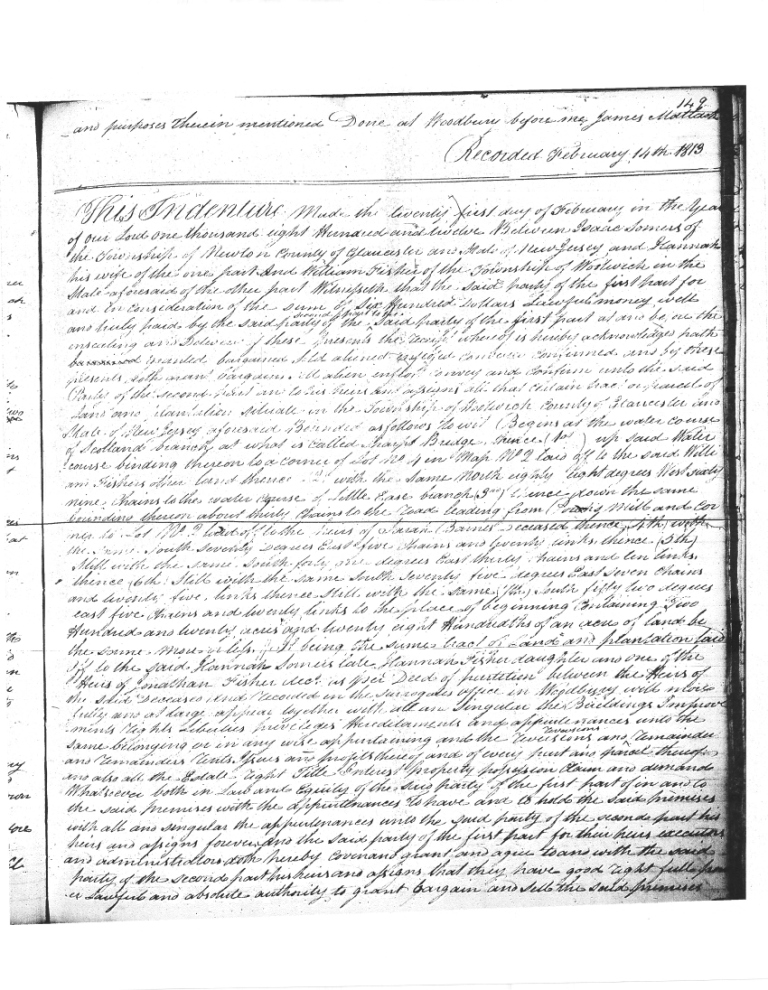 149
and purposes therein mentioned Done at Woodbury before me James Matlack
Recorded February 14th 1813
This Indenture Made the twenty first day of February in the Year
of our Lord one thousand eight Hundred and twelve Between Isaac Somers of
the Township of Newton County of Gloucester and State of New Jersey and Hannah
his wife of the one part And William Fisher of the Township of Woolwich in the
State aforesaid of the other part Witnesseth that the said party of the first part for
and In Consideration of the sum of Six Hundred Dollars Lawful money well
second part to the
and truly paid by the said party of the Said party of the first part at and before the
ensealing and Delivery of these presents the receipt whereof is hereby acknowledged hath
granted bargained sold aliened enfeoffed conveyed Confirmed and by these
presents doth grant bargain sell alien enfeoff convey and Confirm unto the said
Party of the second part and to his heirs and assigns all that certain tract or parcel of
Land and plantation situate in the Township of Woolwich County of Gloucester and
State of New Jersey aforesaid Bounded as follows to wit Begins at the water course
of Scotland branch at what is called Sharps Bridge thence (1st) up said Water
course binding thereon to a corner of Lot No 4 in Map No 2 laid off to the said Willi
am Fishers other land thence 2 with the same North eighty eight degrees West sixty
nine Chains to the water course of Little Ease branch 3rd thence down the same
bounding thereon about thirty Chains to the road leading from Mill and Cor
ner to Lot No 3 laid off to the heirs of Sarah Barnes Deceased thence (4th) with
the same South Seventy Degrees East five Chains and twenty links thence (5th)
Still with the same South forty one degrees East thirty Chains and ten links
thence (6th) Still with the same South Seventy five degrees East Seven Chains
and twenty five links thence Still with the same (7th) South fifty two degrees
east five Chains and twenty links to the place of beginning Containing Two
Hundred and twenty acres and twenty eight Hundredths of an acre of land be
the same more or less it being the same tract of Land and plantation laid
off to the said Hannah Somers late Hannah Fisher daughter and one of the
Heirs of Jonathan Fisher decd. as per Deed of partition between the Heirs of
the said Deceased And recorded in the Surrogates office in Woodbury will more
fully and at large appear together with all and Singular the Buildings Improve
ments Rights Liberties privileges Hereditaments and appurtenances unto the
Reversions
same belonging or in any wise appertaining and the Reversions and Remainder
and Remainders Rents Issues and profits thereof and of every part and parcel thereof
and also all the Estate right Title Interest Property possession Claim and demand
Whatsoever both in Law and Equity of the said party of the first part of in and to
the said premises with the appurtenances to have and to hold the said premises
with all and singular the appurtenances unto the said party of the second part his
heirs and assigns forever And the said party of the first part for their heirs executors
and administrators doth hereby Covenant grant and agree to and with the said
party of the second part his heirs and assigns that they have good right full power
Lawful and absolute authority to grant bargain and sell the said premises